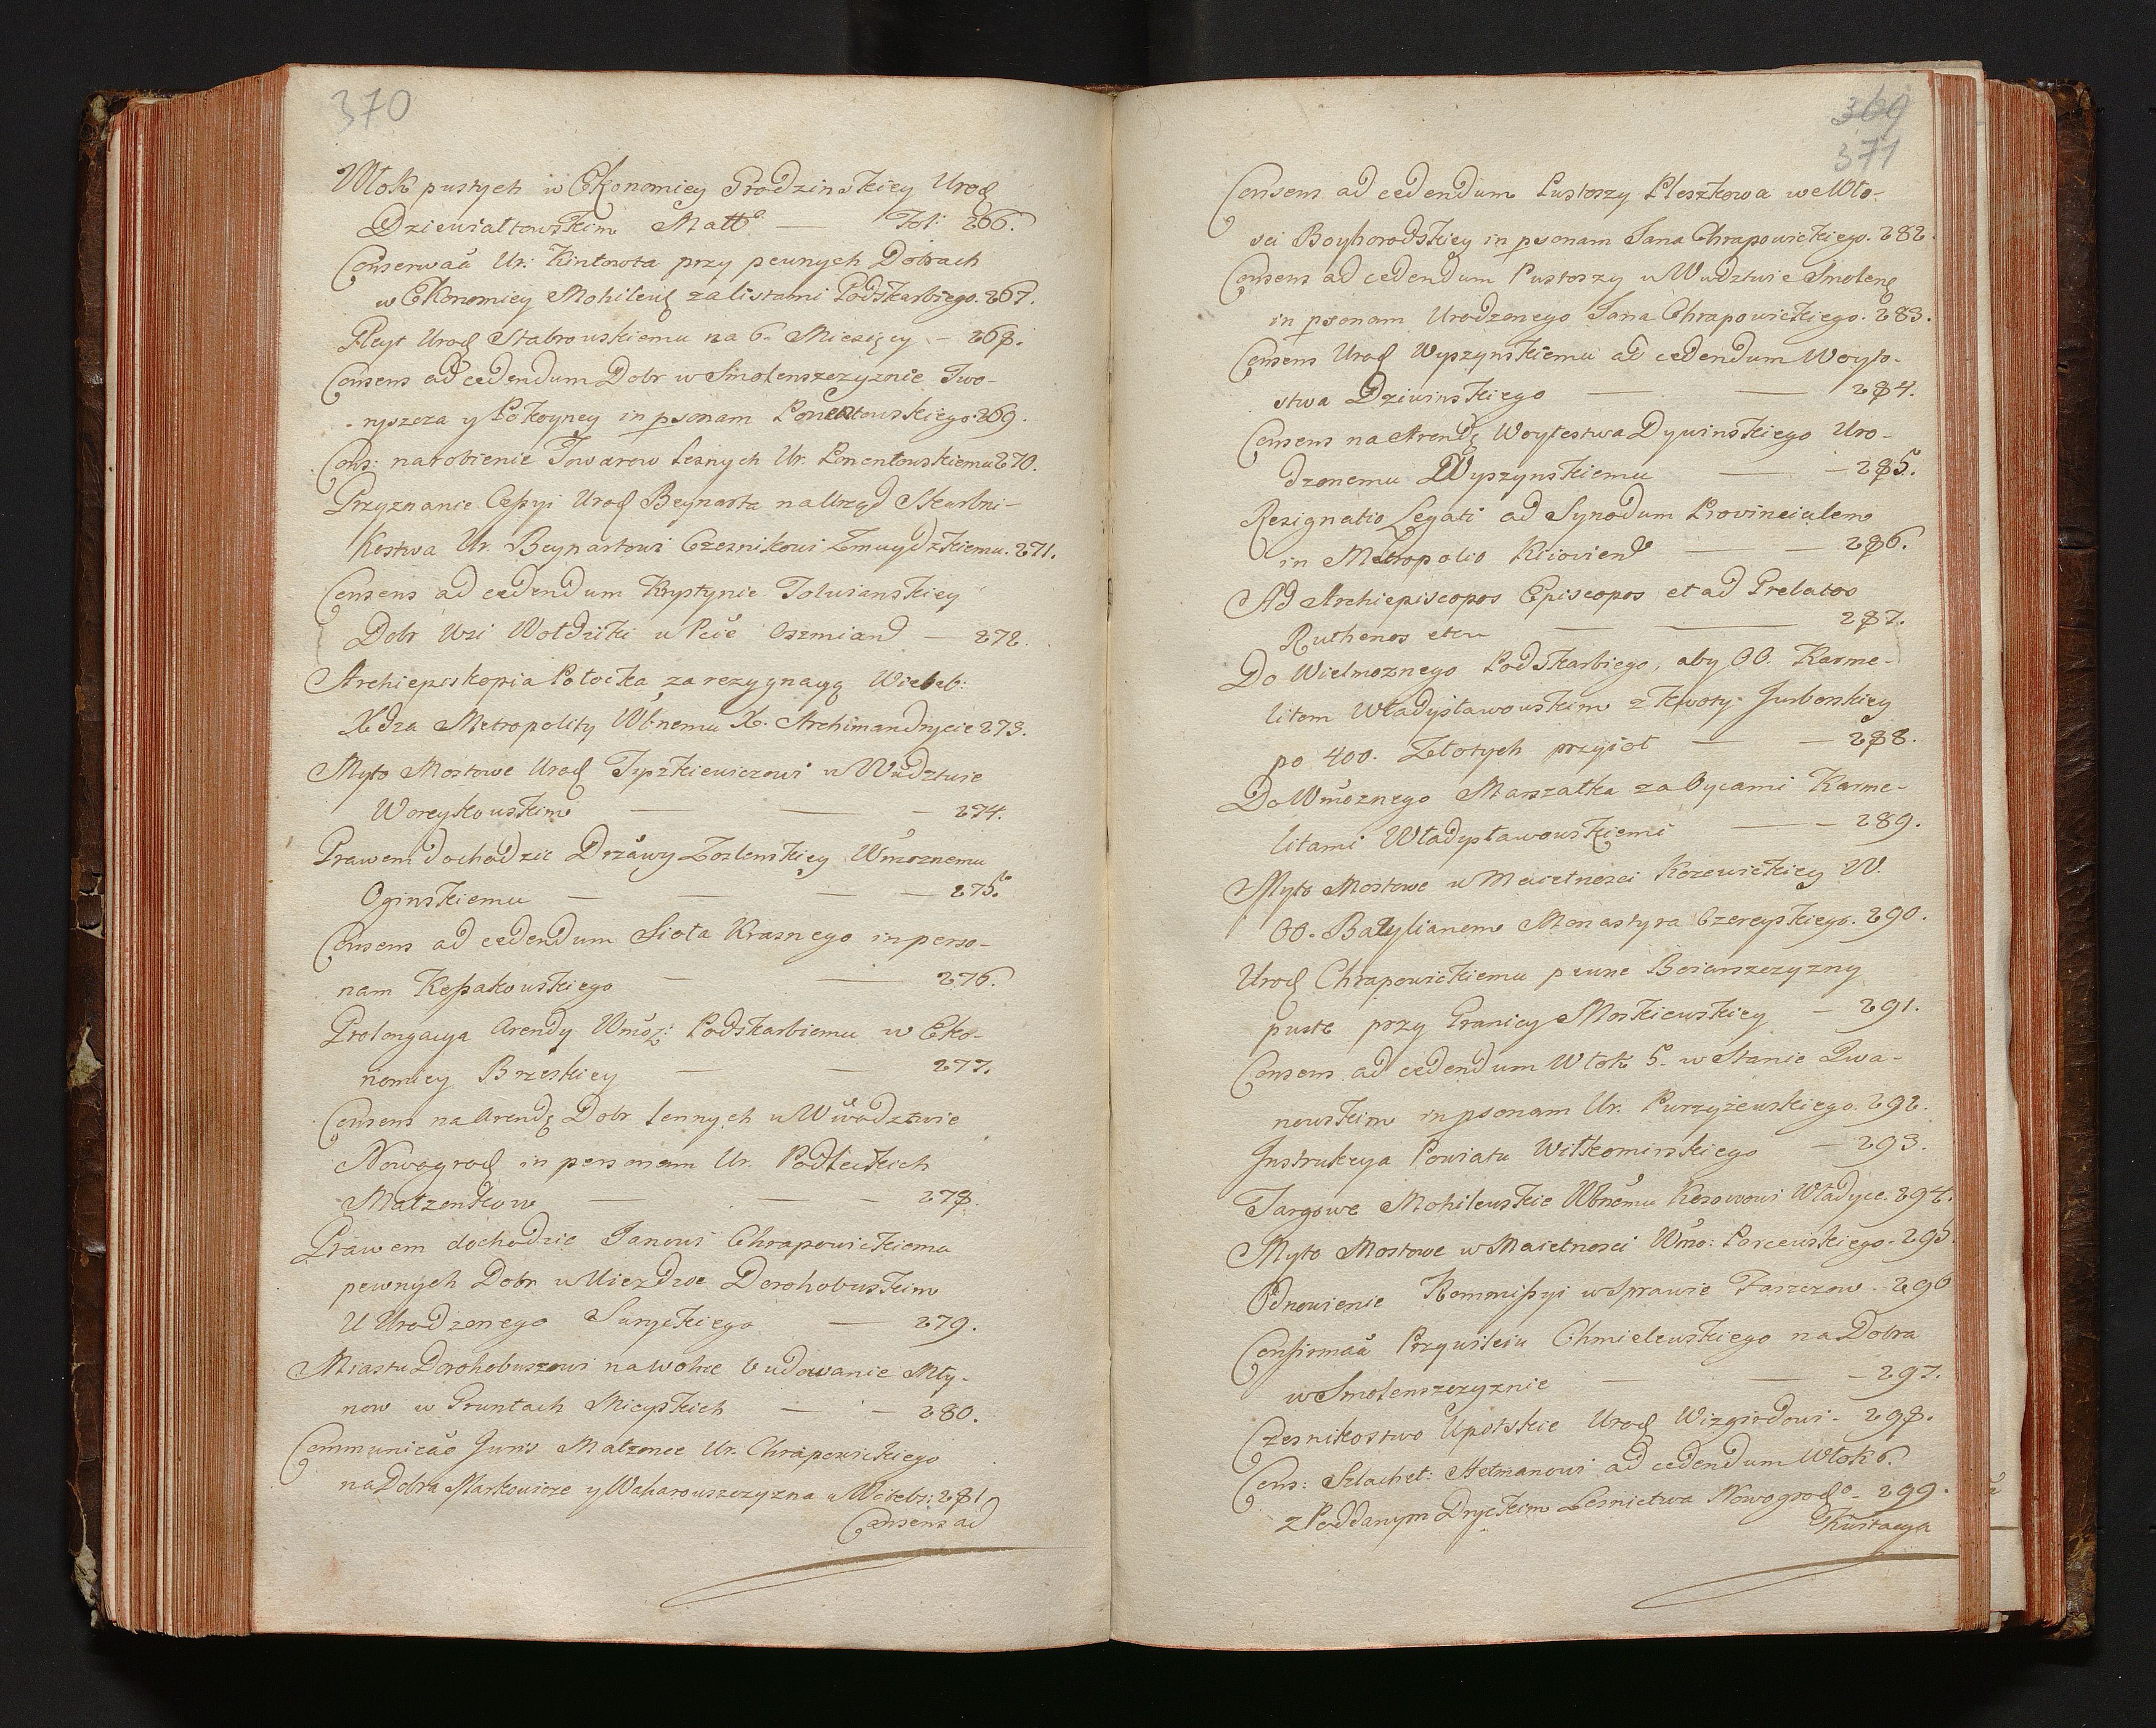 370
Włok pustych w Ekonomiey Grodzinskiey Urod
Dziewiałtowskim Matt° — Fol: 266.
Conserwaã Ur: Kintowta przy pewnych Dobrach
w Ekonomiey Mohilens za listami Podskarbiego. 267.
Gleyt Urod Stabrowskiemu na 6. Miesięcy – 268.
Consens ad cedendum Dobr w Smolenszczyznie Two-
ryszcza y Pokoyney in psonam Ponentowskiego. 269.
Cons: na robienie Towarow Lesnych Ur. Ponentowskiemu 270.
Przyznanie Cessyi Urod Beynarta na Urząd Skarbni-
kostwa Ur. Beynartowi Czesnikowi Zmuydzkiemu. 271.
Consens ad cedendum Krystynie Tolwianskiey
Dobr Wsi Wołdziki w Pcie Oszmian — 272.
Archiepiskopia Połocka za rezygnacyą Wieleb:
Xdza Metropolity Wbnemu X. Archimandrycie 273.
Myto Mostowe Urod Tyszkiewiczowi w Wudztwie
Woreykowskim — — – 274.
Prawem dochodzic Drzawy Zoslenskiey Wmoznemu
Oginskiemu — — — 275.
Consens ad cedendum Sioła Krasnego in perso-
nam Kossakowskiego — — 276.
Prolongacya Arendy Wmoz: Podskarbiemu w Eko-
nomiey Brzeskiey — — 277.
Consens na Arendę Dobr Lennych w Wwodztwie
Nowogrod in personam Ur. Podleckich
Małzonkow — — – 278
Prawem dochodzic Janowi Chrapowickiemu
pewnych Dobr w Uiezdzie Dorohobuskim
U Urodzonego Suryckiego — 279.
Miastu Dorohobuszowi na wolne budowanie Mły-
now w Gruntach Mieyskich — – 280.
Communicaõ Juris Małzonce Ur. Chrapowickiego
na Dobra Markowicze y Waharowszczyzna w Witebs: 281
Consens ad
369
371
Consens ad cedendum Pustoszy Pleszkowa we Wło-
sci Boyhorodskiey in psonam Jana Chrapowickiego. 282.
Consens ad cedendum Pustoszy w Wudztwie Smolens
in psonam Urodzonego Jana Chrapowickiego. 283.
Consens Urod Wyszynskiemu ad cedendum Woyto-
stwa Dziwinskiego — — 284.
Consens na Arendę Woytostwa Dywinskiego Uro-
dzonemu Wyszynskiemu — – 285.
Resignatio Legati ad Synodum Provincialem
in Metropolio Kiiovien — – 286.
Ad Archiepiscopos Episcopos et ad Prelatos
Ruthenos etcu — — 287.
Do Wielmoznego Podskarbiego, aby OO. Karme-
litom Władysławowskim z Kwoty Jurborskiey
po 400. Złotych przyioł — – 288.
Do Wmoznego Marszałka za Oycami Karme-
litami Władysławowskiemi — – 289.
Myto Mostowe w Maietnosci Kozewickiey W.
OO. Bazylianom Monastyra Czereyskiego. 290.
Urod Chrapowickiemu pewne Boiarszczyzny
puste przy Granicy Moskiewskiey – 291.
Consens ad cedendum Włok 5. w Stanie Dwa-
nowskim in psonam Ur. Purzyżewskiego. 292.
Instrukcya Powiatu Wiłkomirskiego – 293.
Targowe Mohilewskie Wbnemu Kosowowi Władyce. 294.
Myto Mostowe w Maietnosci Wmo: Parcewskiego. 295
Odnowienie Kommissyi w Sprawie Faszczow – 296
Confirmaã Przywileiu Chmielewskiego na Dobra
w Smolenszczyznie — — – 297.
Czesnikostwo Upitskie Urod Wizgirdowi – 298.
Cons: Szlachet: Hetmanowi ad cedendum Włok 6.
z Poddanym Dryckim Lesnictwa Nowogrod° – 299.
Kustacya